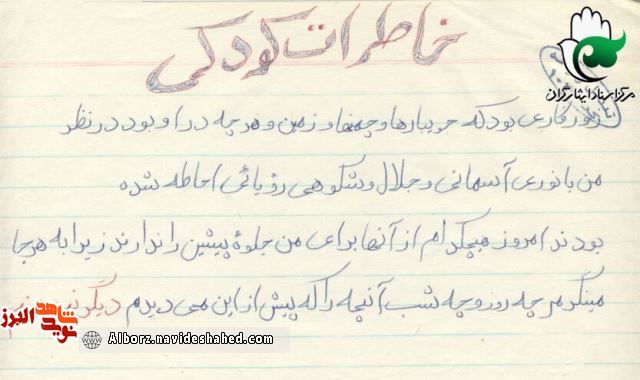 خاطرات کودکی
مرکز اسناد ایثارگران
روزگاری بود که جویبارها و چمنها و زمین و هرچه در او بود در نظر
من با نوری آسمانی و جلال و شکوهی رؤیائی احاطه شده
بودند امروز هیچکدام از آنها برای من جلوهٔ پیشین را ندارند زیرا به هر جا
مینگرم چه روز و چه شب آنچه را که پیش از این می دیدم دیگر
نوید شاهد البرز
Alborz.navideshahed.com